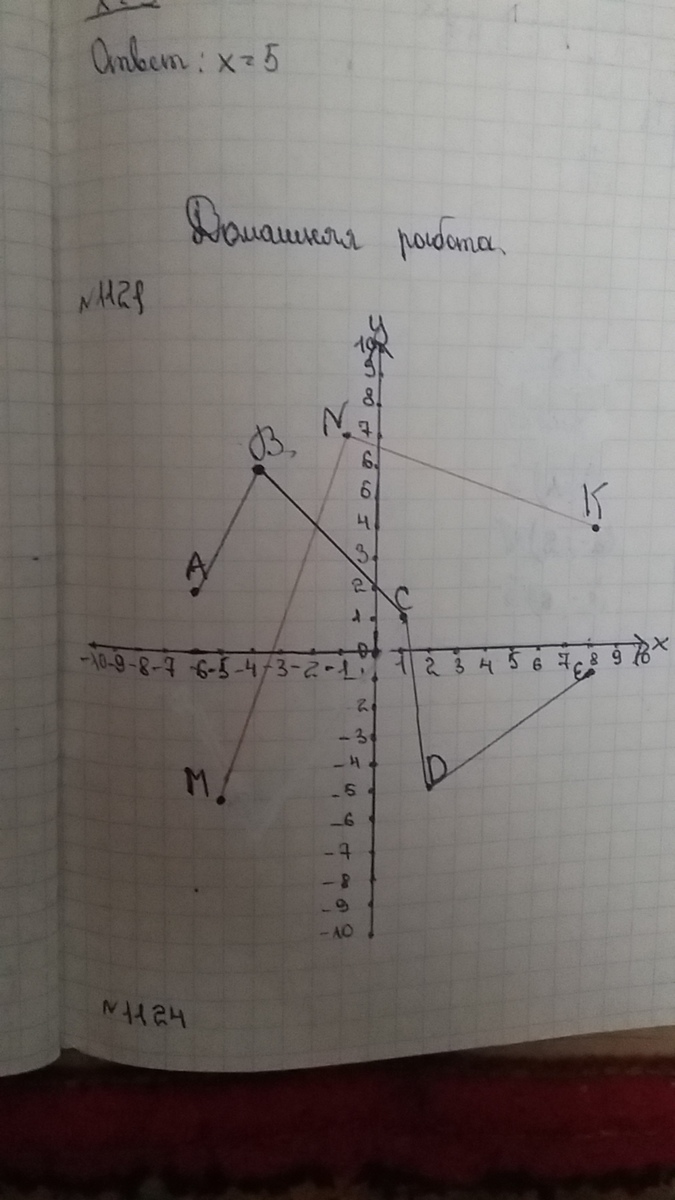 Ответ: x = 5
Домашняя работа.
у
10
9
8
N 7
B 6
5
K 4
3
A 2
C 1
-10 -9 -8 -7 -6 -5 -4 -3 -2 -1 0 1 2 3 4 5 6 7 8 9 10 x
E
2
-3
D -4
M -5
-6
-7
-8
-9
-10
№1124